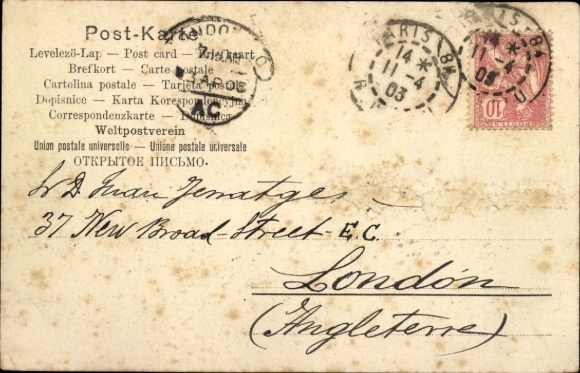 Post-Karte
Levelező-Lap — Post card — Brefkaart
Brefkort — Carte postale
Cartolina postale — Tarjeta postal
Dopisnice — Karta Korespondencyjna
Correspondenzkarte — Dopisnica
Weltpostverein
Union postale universelle — Unione postale universale
ОТКРЫТОЕ ПИСЬМО.
LONDON
AC
PARIS
14 *
11 - 4
03
PARIS
14 *
11 - 4
03
10
Sr D. Juan
37 New Broad-Street-E.C.
Londón
(Angleterre)